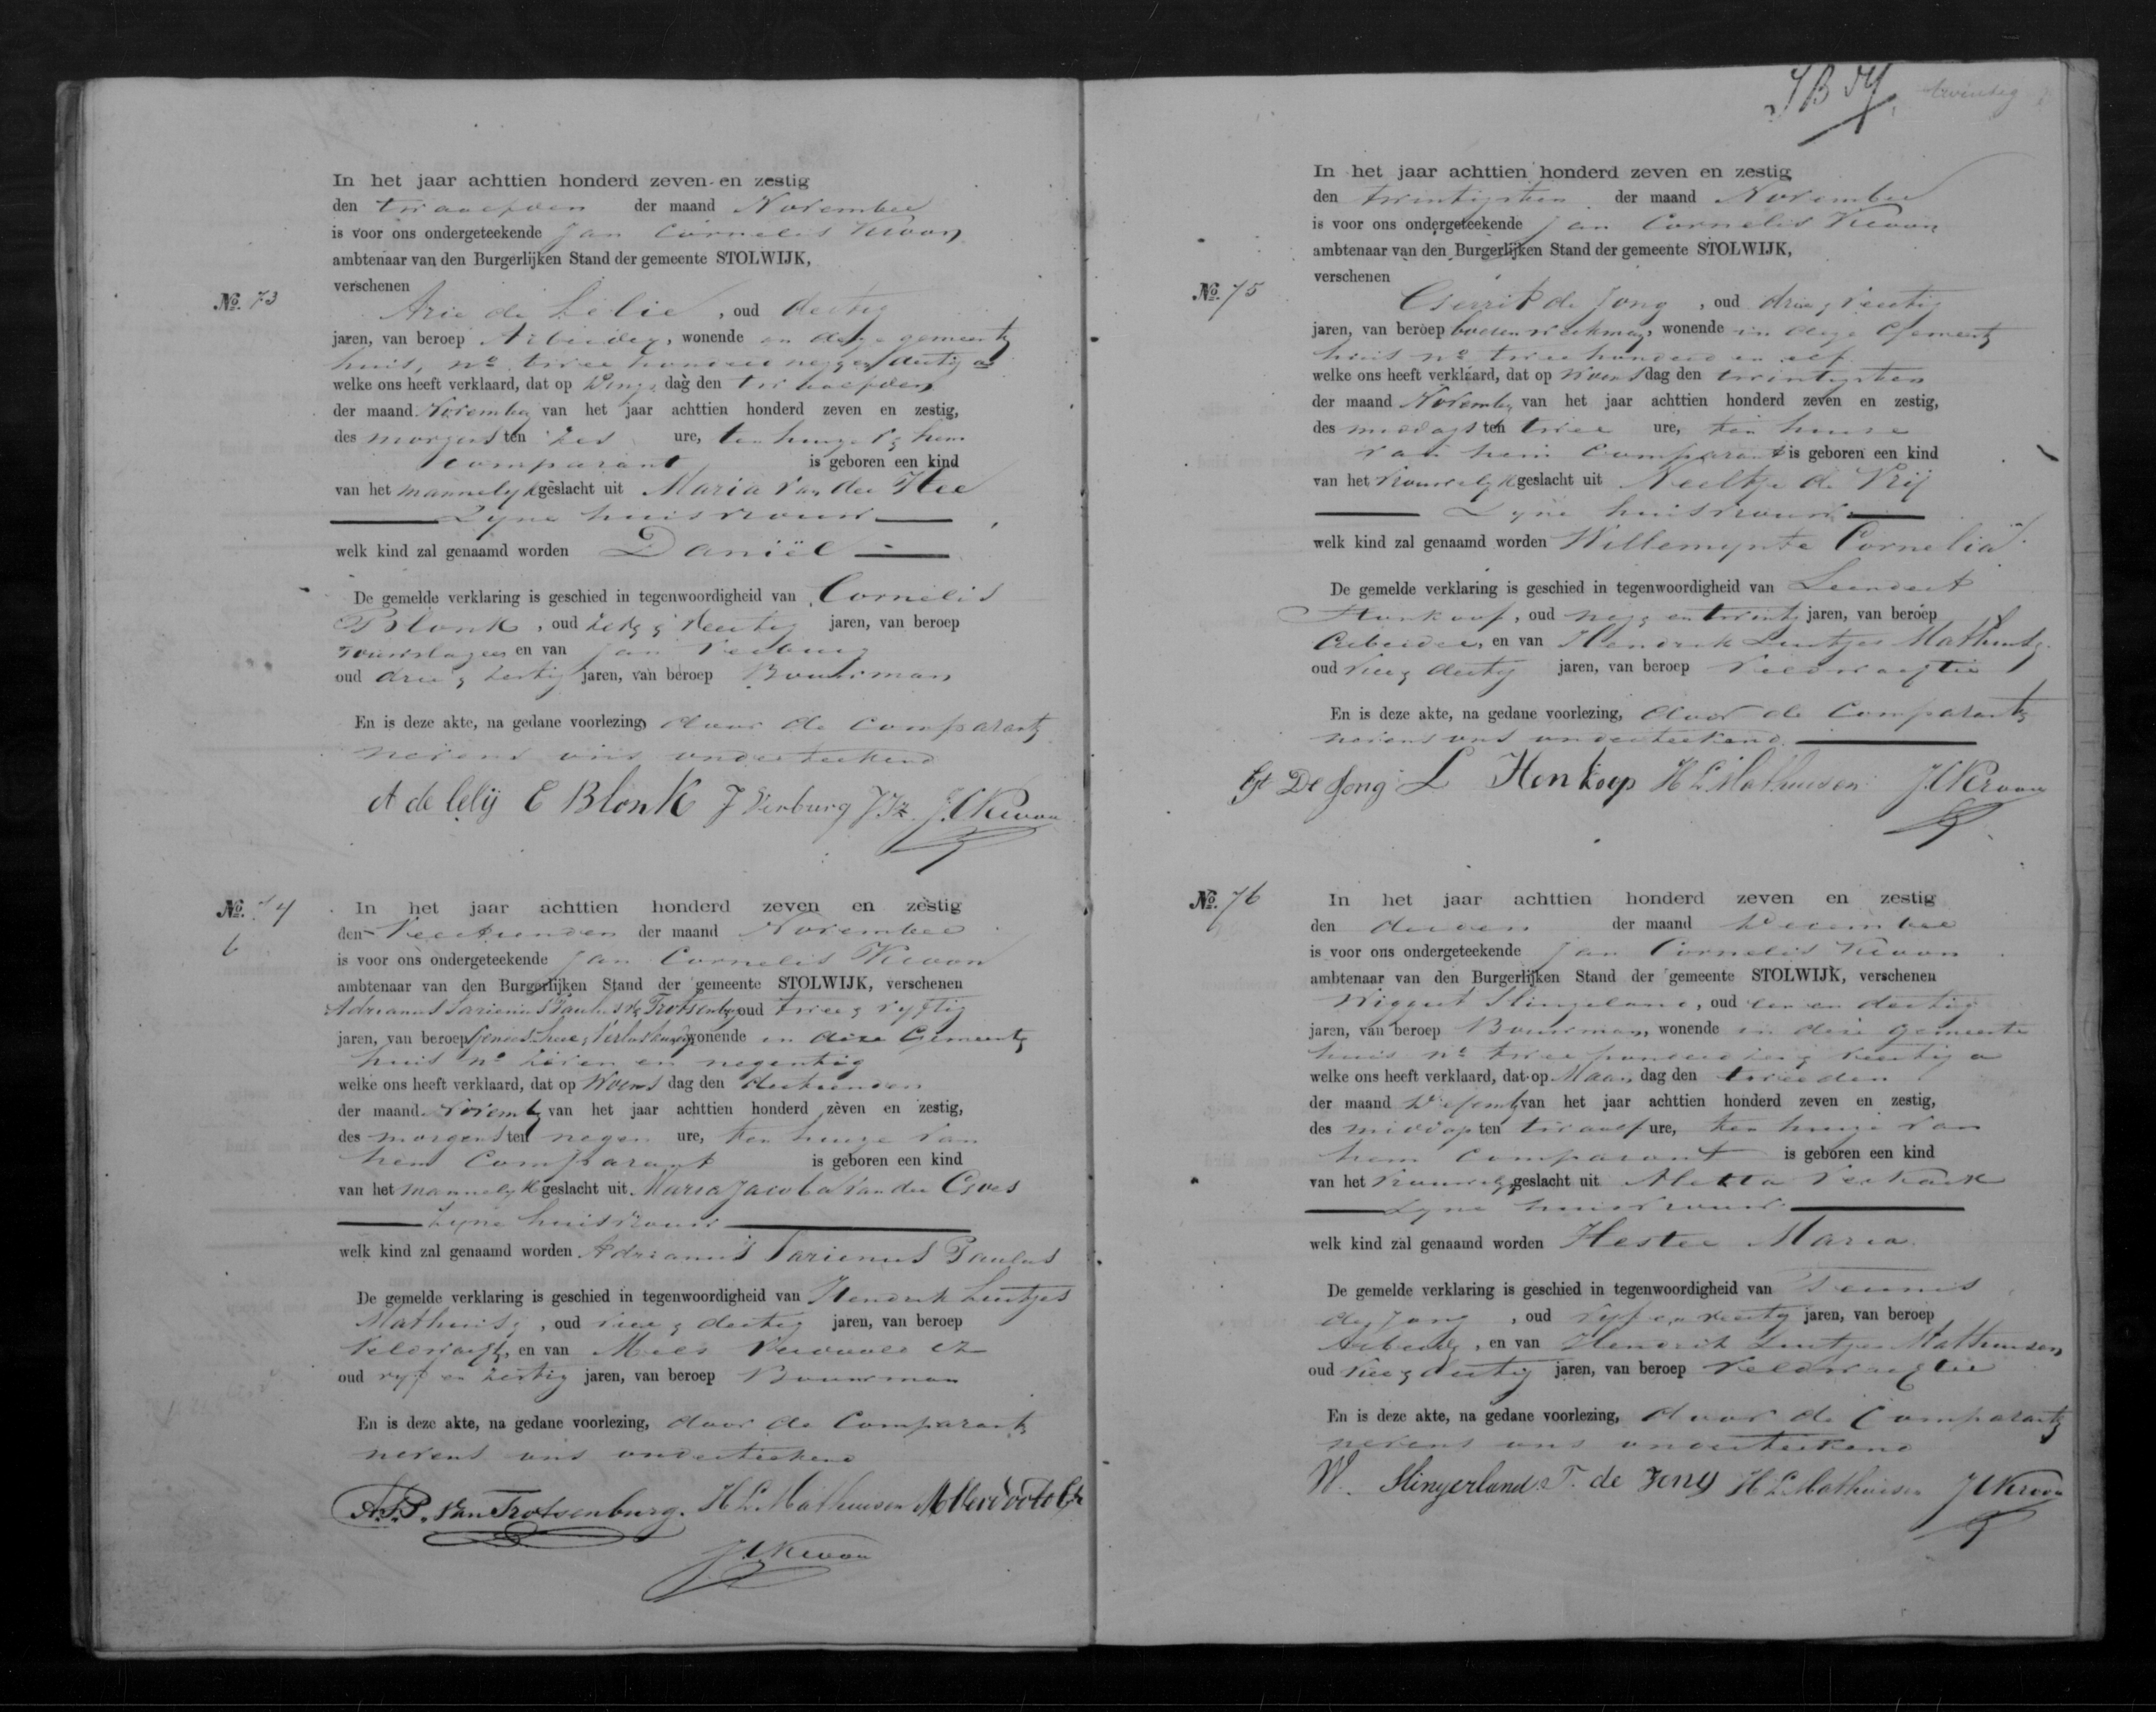 In het jaar achttien honderd zeven en zestig
den twaalfden der maand November
is voor ons ondergeteekende Jan Cornelis Kroon
ambtenaar van den Burgerlijken Stand der gemeente STOLWIJK,
verschenen
No. 73
Arie de Lelie, oud dertig
jaren, van beroep Arbeider, wonende in deze gemeente
huis, no. twee honderd neg en dertig a
welke ons heeft verklaard, dat op Dings dag den twaalfden
der maand November van het jaar achttien honderd zeven en zestig,
des morgens ten zes ure, ten huize v hem
comparant is geboren een kind
van het mannelyk geslacht uit Maria van der Hee
zyne huisvrouw
welk kind zal genaamd worden Daniël
De gemelde verklaring is geschied in tegenwoordigheid van Cornelis
Blonk, oud veertig jaren, van beroep
en van Jan Verburg
oud drie zestig jaren, van beroep Bouwman
En is deze akte, na gedane voorlezing, door de comparanten
nevens ons onderteekend
A de lelij C Blonk J Verburg JJz. J.C.Kroon
No. 74
6
In het jaar achttien honderd zeven en zestig
den Veertienden der maand November
is voor ons ondergeteekende Jan Cornelis Kroon
ambtenaar van den Burgerlijken Stand der gemeente STOLWIJK, verschenen
Adrianus Sarienus Paulus v Trotsenburg oud twee vyftig
jaren, van beroep Genees heer Verloskundige wonende in deze Gemeente
huis no zeven en negentig
welke ons heeft verklaard, dat op Woens dag den dertienden
der maand November van het jaar achttien honderd zeven en zestig,
des morgens ten negen ure, ten huize van
hem Comparant is geboren een kind
van het mannelyk geslacht uit Maria Jacoba van der Goes
zyne huisvrouw
welk kind zal genaamd worden Adrianus Sarienus Paulus
De gemelde verklaring is geschied in tegenwoordigheid van Hendrik Luntjes
Mathuisen, oud vier dertig jaren, van beroep
Veldwachter, en van Mees Verdoold Cz
oud vyf en zestig jaren, van beroep Bouwman
En is deze akte, na gedane voorlezing, door de Comparanten
nevens ons onderteekend
A.S.P. van Trotsenburg. H L Mathuisen M Verdoold Cz
J.C.Kroon
In het jaar achttien honderd zeven en zestig
den twintigsten der maand November
is voor ons ondergeteekende Jan Cornelis Kroon
ambtenaar van den Burgerlijken Stand der gemeente STOLWIJK,
verschenen
No. 75
Gerrit de Jong, oud drie veertig
jaren, van beroep bouwman, wonende in deze Gemeente
huis no twee honderd en elf
welke ons heeft verklaard, dat op Woens dag den twintigsten
der maand November van het jaar achttien honderd zeven en zestig,
des middags ten twee ure, ten huize
van hem Comparant is geboren een kind
van het Vrouwelyk geslacht uit Neeltje de Vrij
zyne huisvrouw
welk kind zal genaamd worden Willemyntje Cornelia
De gemelde verklaring is geschied in tegenwoordigheid van Leendert
Honkoop, oud neg en twintig jaren, van beroep
Arbeider, en van Hendrik Luntjes Mathuisen
oud vier dertig jaren, van beroep Veldwachter
En is deze akte, na gedane voorlezing, door de Comparanten
nevens ons onderteekend.
Gt De Jong L Honkoop H L Mathuisen J.C.Kroon
No. 76
In het jaar achttien honderd zeven en zestig
den derden der maand December
is voor ons ondergeteekende Jan Cornelis Kroon
ambtenaar van den Burgerlijken Stand der gemeente STOLWIJK, verschenen
Wiggert Slingeland, oud een en dertig
jaren, van beroep Bouwman, wonende in deze gemeente
huis no twee honderd veertig a
welke ons heeft verklaard, dat op Maan dag den tweeden
der maand December van het jaar achttien honderd zeven en zestig,
des middags ten twaalf ure, ten huize van
hem Comparant is geboren een kind
van het Vrouwelyk geslacht uit Aletta Verkaik
zyne huisvrouw
welk kind zal genaamd worden Hester Maria
De gemelde verklaring is geschied in tegenwoordigheid van Teunis
de Jong, oud vyf en veertig jaren, van beroep
Arbeider, en van Hendrik Luntjes Mathuisen
oud vier dertig jaren, van beroep Veldwachter
En is deze akte, na gedane voorlezing, door de Comparanten
nevens ons onderteekend
W. Slingerland T. de Jong H L Mathuisen J.C.Kroon